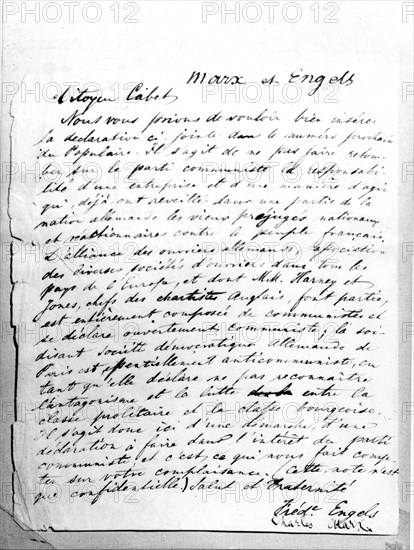 Marx et Engels
Citoyen Cabet,
Nous vous prions de vouloir bien insérer
la déclaration ci jointe dans le numéro prochain
du Populaire. Il s'agit de ne pas faire retom-
ber sur le parti communiste la responsabi-
lité d'une entreprise et d'une manière d'agir
qui, déjà ont réveillé dans une partie de la
nation allemande les vieux préjugés nationaux
et réactionnaires contre le peuple français.
L'alliance des ouvriers allemands, association
des diverses sociétés d'ouvriers dans tous les
pays de l'Europe, et dont M.M. Harney et
Jones, chefs des chartistes Anglais, font partie,
est entièrement composée de communistes et
se déclare ouvertement communiste; la soi-
disant société démocratique Allemande de
Paris est essentiellement anticommuniste, en
tant qu'elle déclare ne pas reconnaître
l'antagonisme et la lutte entre la
classe prolétaire et la classe bourgeoise.
Il s'agit donc ici d'une démarche, d'une
déclaration à faire dans l'intérêt du parti
communiste et c'est, ce qui nous fait comp-
ter sur votre complaisance. (Cette note n'est
que confidentielle.) Salut et fraternité
Fréd. Engels
Charles Marx
PHOTO12